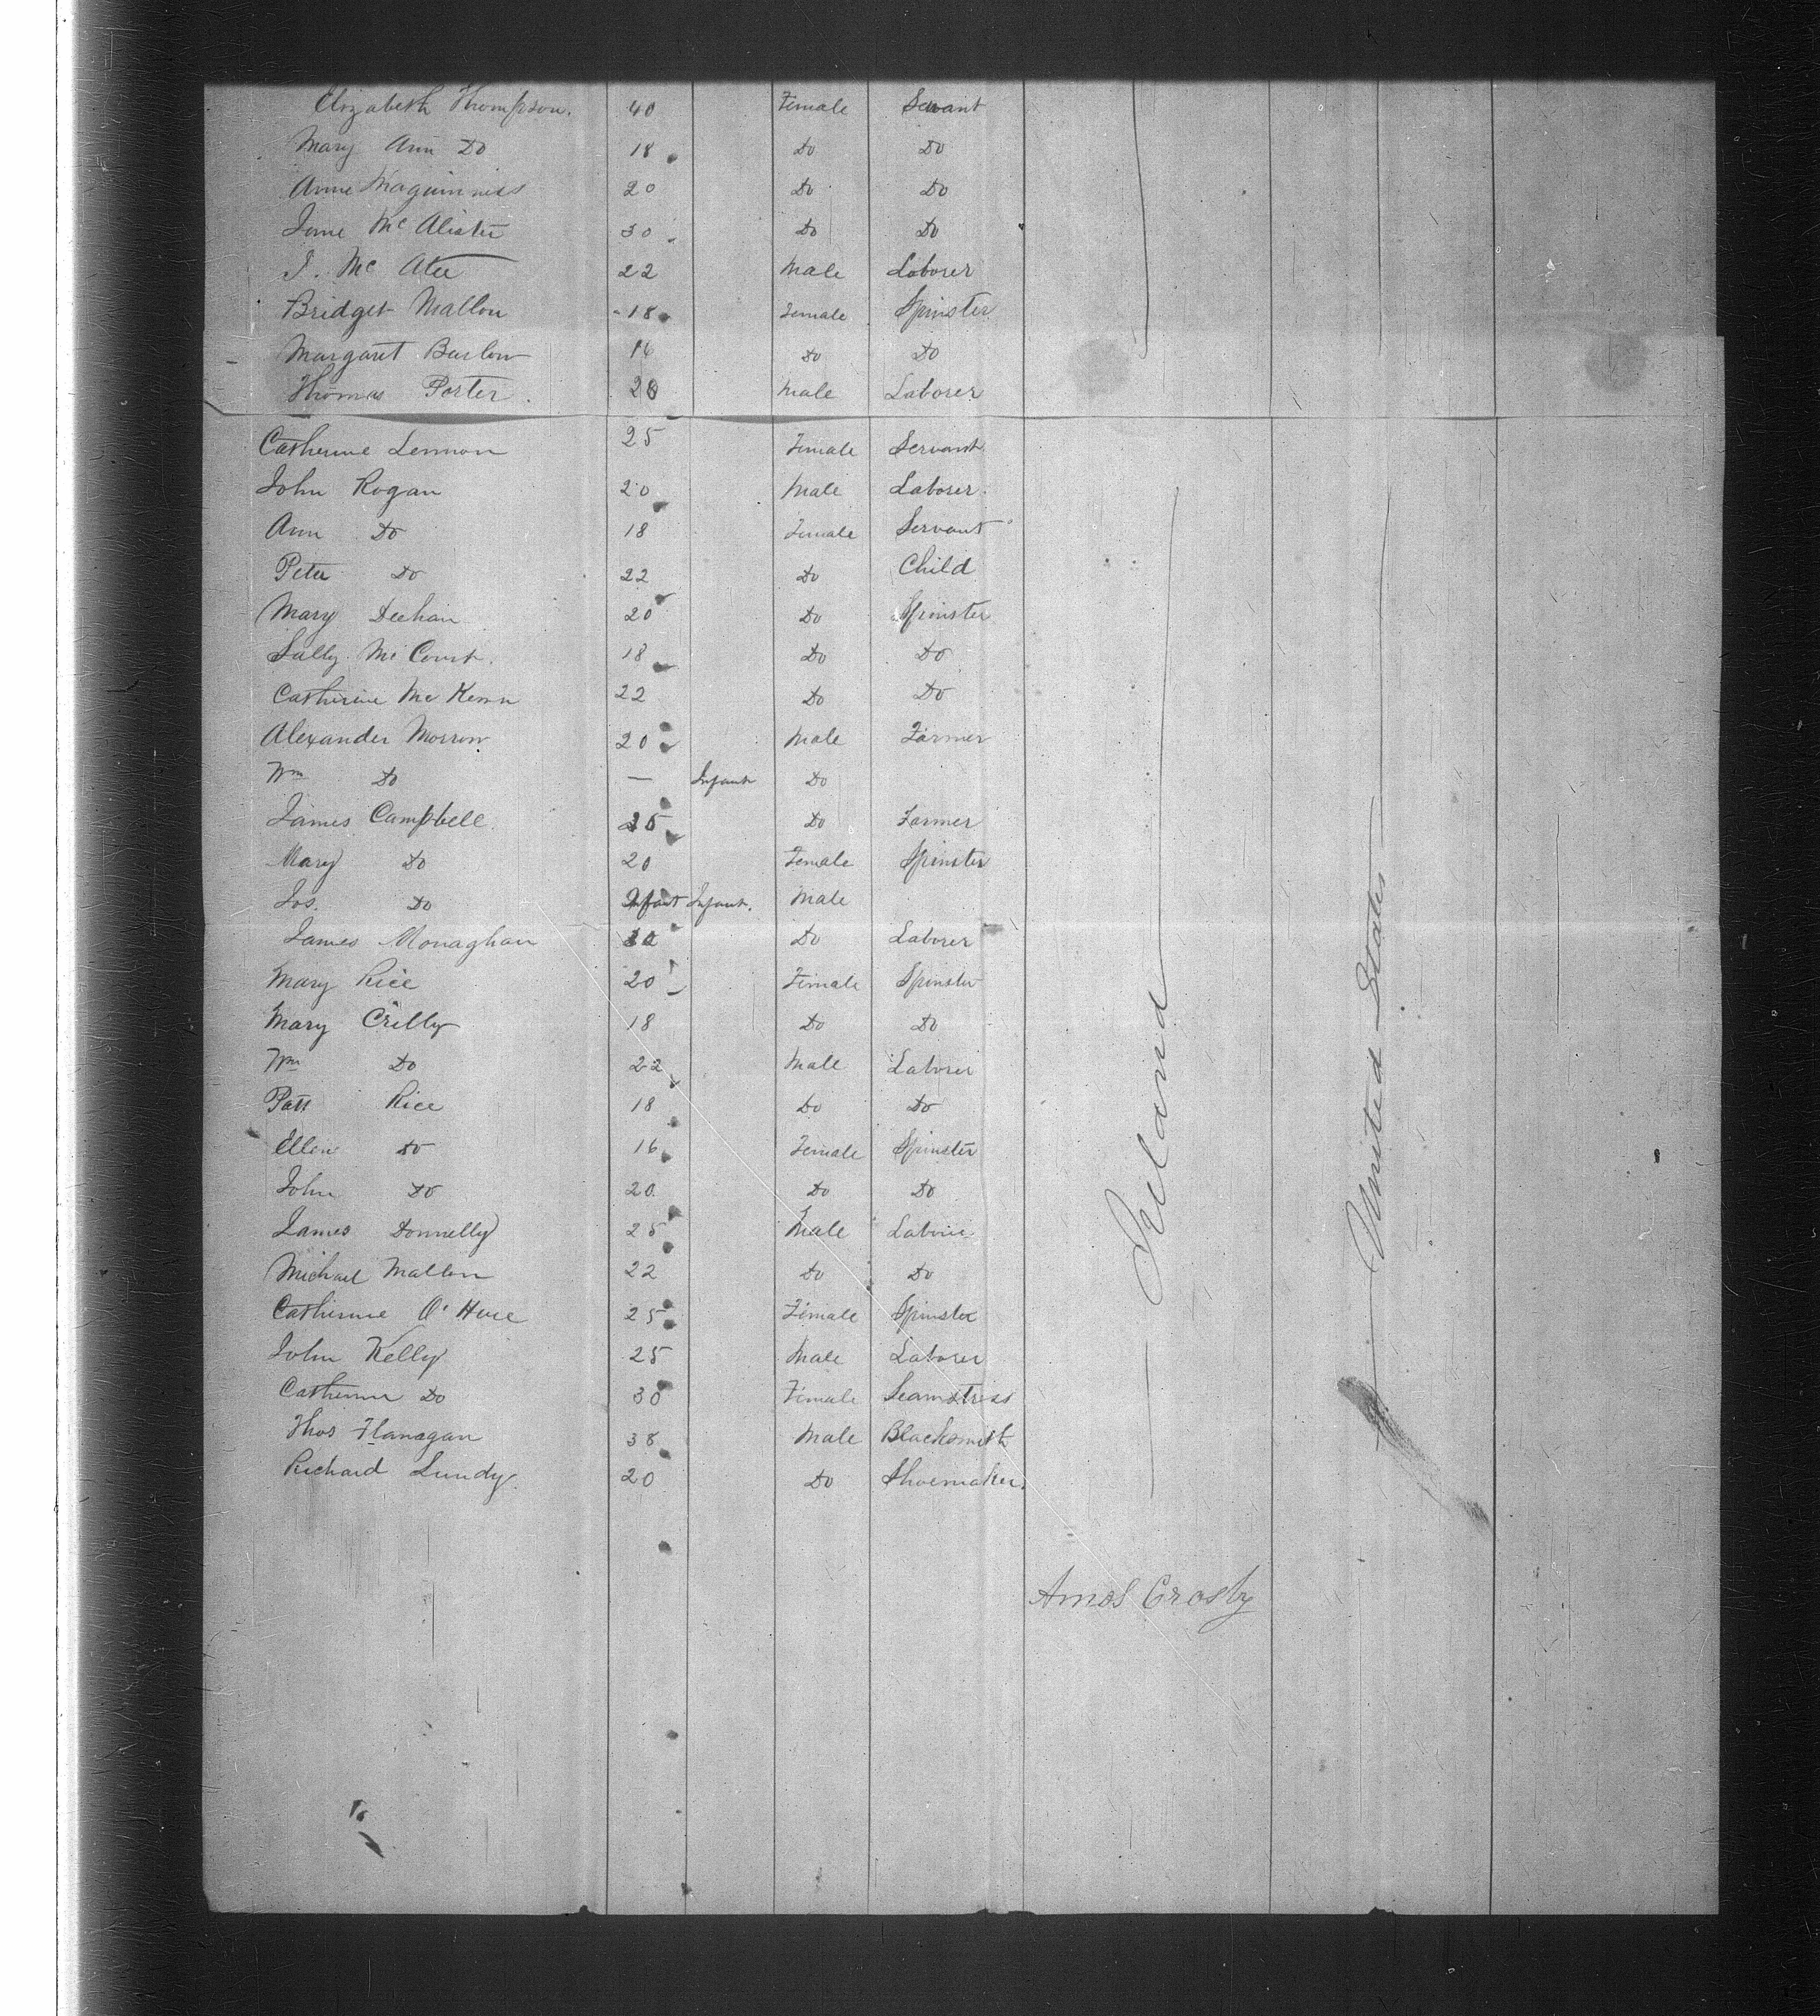 Elizabeth Thompson. 40 Female Servant
Mary Ann Do 18 Do Do
Anne Maguinness 20 Do Do
Jane Mc Alister 30 Do Do
J. Mc Atee 22 Male Laborer
Bridget Mallon 18 Female Spinster
Margaret Barlow 16 Do Do
Thomas Porter. 20 Male Laborer
Catherine Lennon 25 Female Servant
John Rogan 20 Male Laborer.
Ann Do 18 Female Servant
Peter Do 22 Do Child
Mary Deehan 20 Do Spinster
Sally Mc Court. 18 Do Do
Catherine Mc Kenn 22 Do Do
Alexander Morrow 20 Male Farmer
Wm Do — Infant Do
James Campbell. 25 Do Farmer
Mary Do 20 Female Spinster
Jos. Do Infant Infant. Male
James Monaghan 30 Do Laborer
Mary Rice 20 Female Spinster
Mary Crilly 18 Do Do
Wm Do 22 Male Laborer
Patt Rice 18 Do Do
Ellen Do 16 Female Spinster
John Do 20. Do Do
James Donnelly 25 Male Laborer
Michael Mallon 22 Do Do
Catherine O'Hare 25 Female Spinster
John Kelly 25 Male Laborer
Catherine Do 30 Female Seamstress
Thos Flanagan 38 Male Blacksmith
Richard Lundy. 20 Do Shoemaker.
Ireland
United States
Amos Crosby